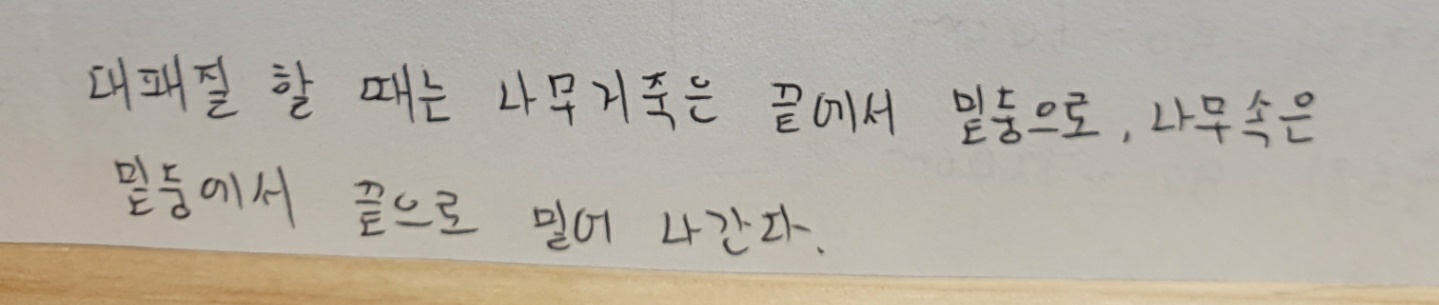 대패질 할 때는 나무거죽은 끝에서 밑둥으로, 나무속은
밑둥에서 끝으로 밀어 나간다.